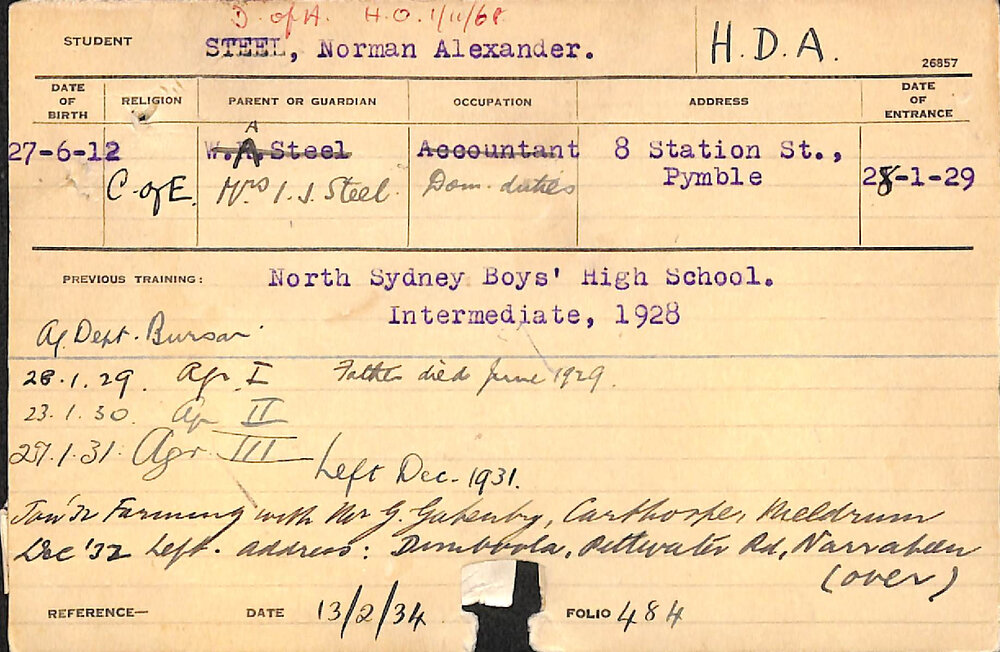 D. of A. H.O. 1/11/68
STUDENT STEEL, Norman Alexander. H.D.A.
26857
DATE OF BIRTH RELIGION PARENT OR GUARDIAN OCCUPATION ADDRESS DATE OF ENTRANCE
27-6-12 W.A. Steel Accountant 8 Station St.,
C. of E. Mrs I. J. Steel. Dom. duties Pymble 28-1-29
PREVIOUS TRAINING: North Sydney Boys' High School.
Intermediate, 1928
Ag Dept. Bursar
28.1.29. Agr I Father died June 1929.
23.1.30. Agr II
27.1.31. Agr III Left Dec. 1931.
Jan '32 Farming with Mr G. Gatenby, Carthorpe, Meldrum
Dec '32 Left. address: Dimboola, Pittwater Rd, Narrabeen
(over)
REFERENCE— DATE 13/2/34 FOLIO 484